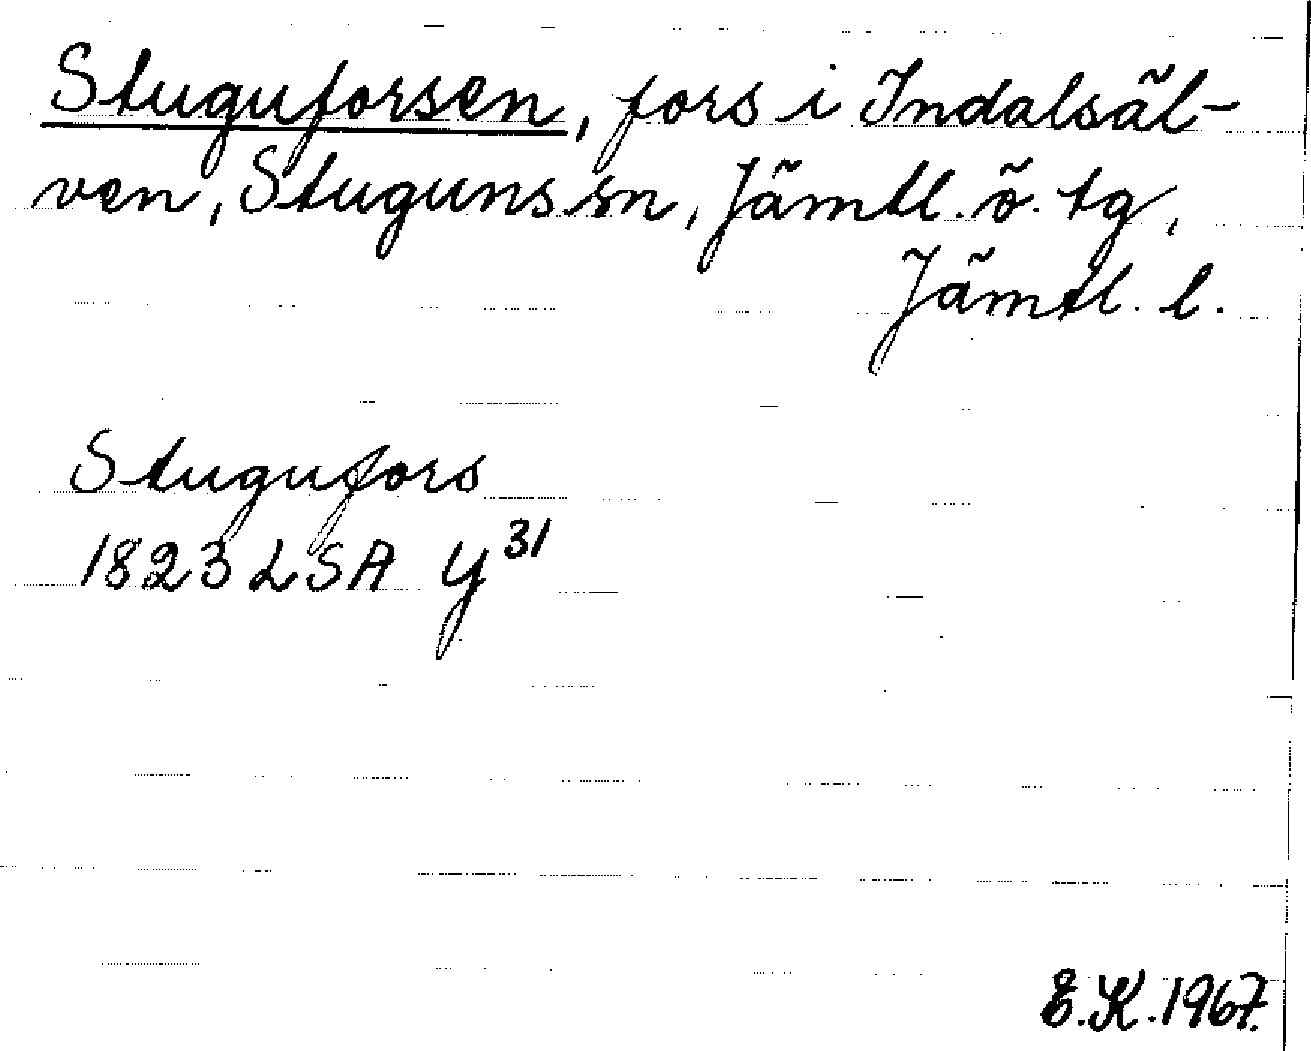 Stuguforsen, fors i Indalsäl-
ven, Stuguns sn, Jämtl. ö. tg,
Jämtl. l.
Stugufors
1823 LSA Y31
E.K. 1967.